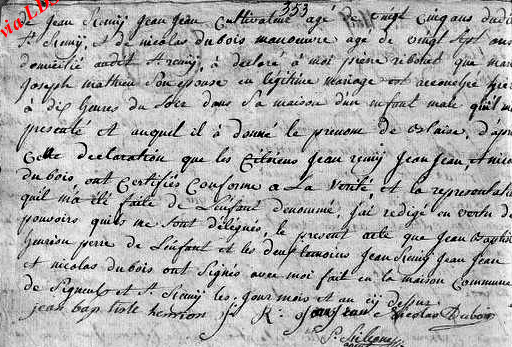 353
via L.D.
Jean Remy Jean Jean Cultivateur agé de vingt Cinq ans dudit
St Remij, et de nicolas dubois manoeuvre agé de vingt sept ans
domicilié audit St remij, a declaré à moi pierre que marie
joseph mathieu Son epouse en legitime mariage est accouchée hier
à dix heures du Soir dans Sa maison d'un enfant male qu'il m'a
presenté et auquel il à donné le prenome de blaise, d'après
Cette declaration que les Citoiens Jean remij Jean Jean, et nicolas
dubois ont Certifiés Conforme a La Verité, et la representation
quil m'a été faite de L'enfant denommé, j'ai redigé en vertu des
pouvoirs quils me Sont délégués, le present acte que Jean Baptiste
henrion perre de L'enfant et les deux temoins Jean Remij Jean Jean
et nicolas dubois ont Signés avec moi fait en la maison Commune
de Signeulx et St Remij les jour mois et an cij dessus
jean baptiste henrion J R Jean Jean Nicolas Dubois